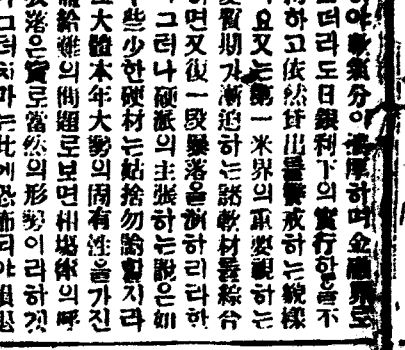 야軟氣分이濃厚하며金融界로
더라도日銀利下의實行함을不
하고依然貸出을警戒하는貌樣
요又는第一米界의重要視하는
期가漸迫하는諸軟材를綜合
하면又復一段暴落을演하리라한
그러나硬派의主張하는說은如
些少한硬材는姑捨勿論할지라
大體本年大勢의固有性을가진
給難의問題로보면相場係의呼
落은實로當然의形勢이라하겟
그러치마는此에恐怖되야